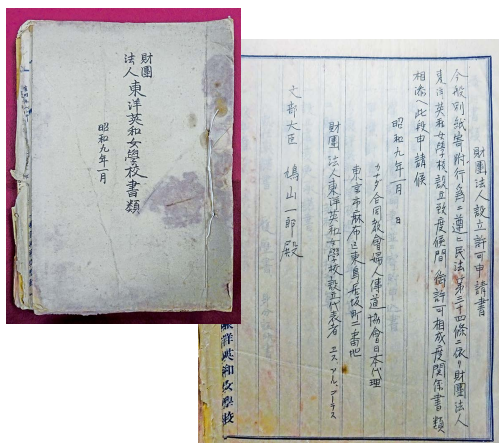 財團
法人
東洋英和女學校書類
昭和九年一月
財團法人設立許可申請書
今般別紙寄附行為ニ遵ヒ民法第三十四條ニ依リ財團法人
東洋英和女學校設立致度候間御許可相成度関係書類
相添ヘ此段申請候
昭和九年一月 日
カナダ合同敎會婦人傳道協會日本代理
東京市麻布区東鳥居坂町二番地
財團法人東洋英和女學校設立代表者 エス アル コーテス
文部大臣 鳩山一郎殿
洋英和女學校